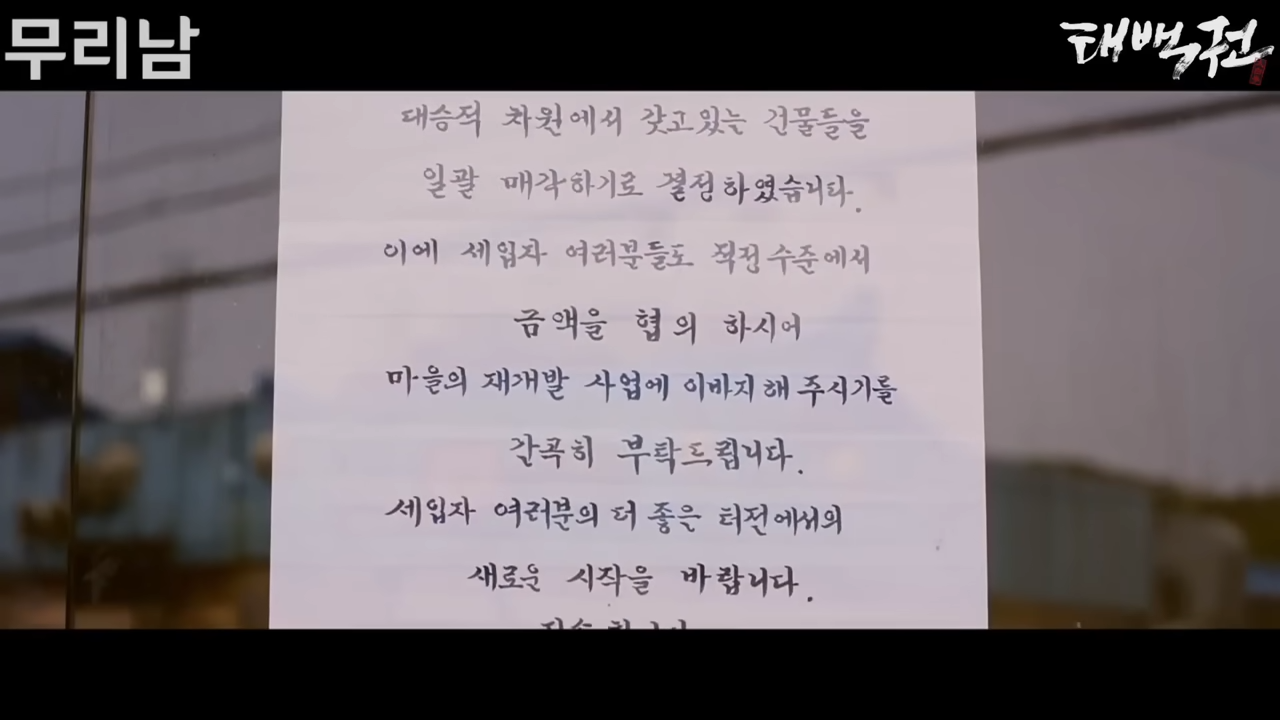 무리남
태백권
대승적 차원에서 갖고있는 건물들을
일괄 매각하기로 결정하였습니다.
이에 세입자 여러분들도 적정수준에서
금액을 협의 하시어
마을의 재개발 사업에 이바지해주시기를
간곡히 부탁드립니다.
세입자 여러분의 더 좋은 터전에서의
새로운 시작을 바랍니다.